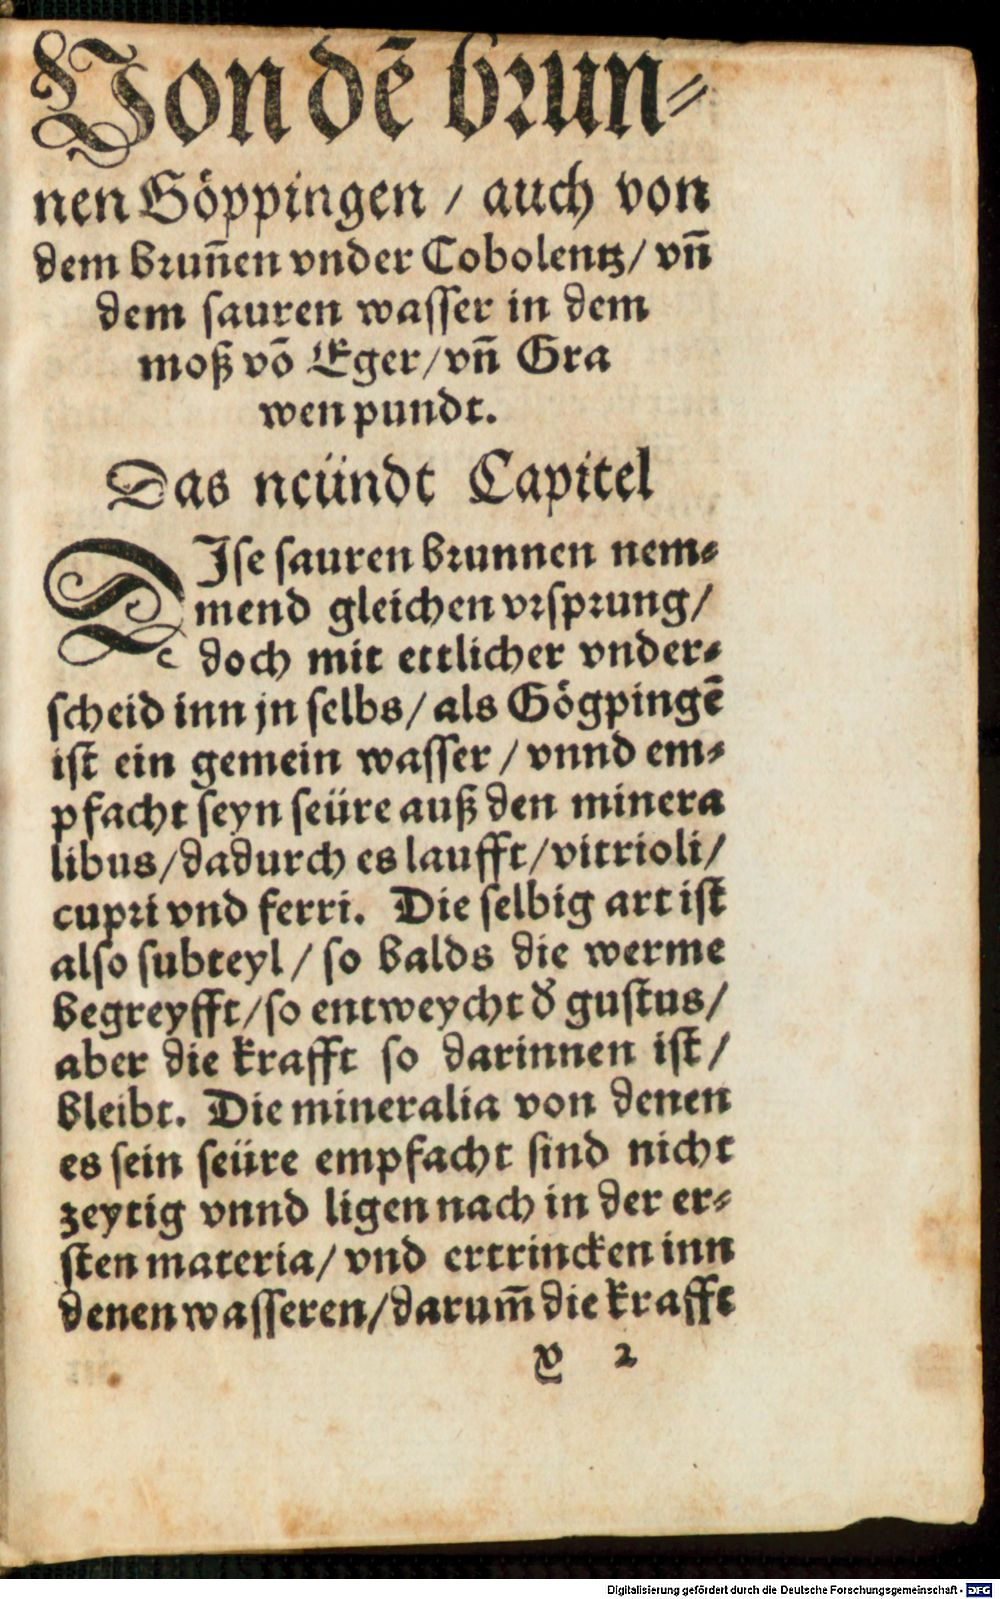 Von dē brun-
nen Göppingen / auch von
dem brun̄en vnder Cobolentz / vn̄
dem sauren wasser in dem
moß vō Eger / vn̄ Gra
wen pundt.
Das neündt Capitel
DIse sauren brunnen nem-
mend gleichen vrsprung /
doch mit ettlicher vnder-
scheid inn jn selbs / als Gögpingē
ist ein gemein wasser / vnnd em-
pfacht seyn seüre auß den minera
libus / dadurch es laufft / vitrioli /
cupri vnd ferri. Die selbig art ist
also subteyl / so balds die werme
begreyfft / so entweycht d̕ gustus /
aber die krafft so darinnen ist /
bleibt. Die mineralia von denen
es sein seüre empfacht sind nicht
zeytig vnnd ligen nach in der er-
sten materia / vnd ertrincken inn
denen wasseren / darum̄ die krafft
v 2
Digitalisierung gefördert durch die Deutsche Forschungsgemeinschaft - DFG